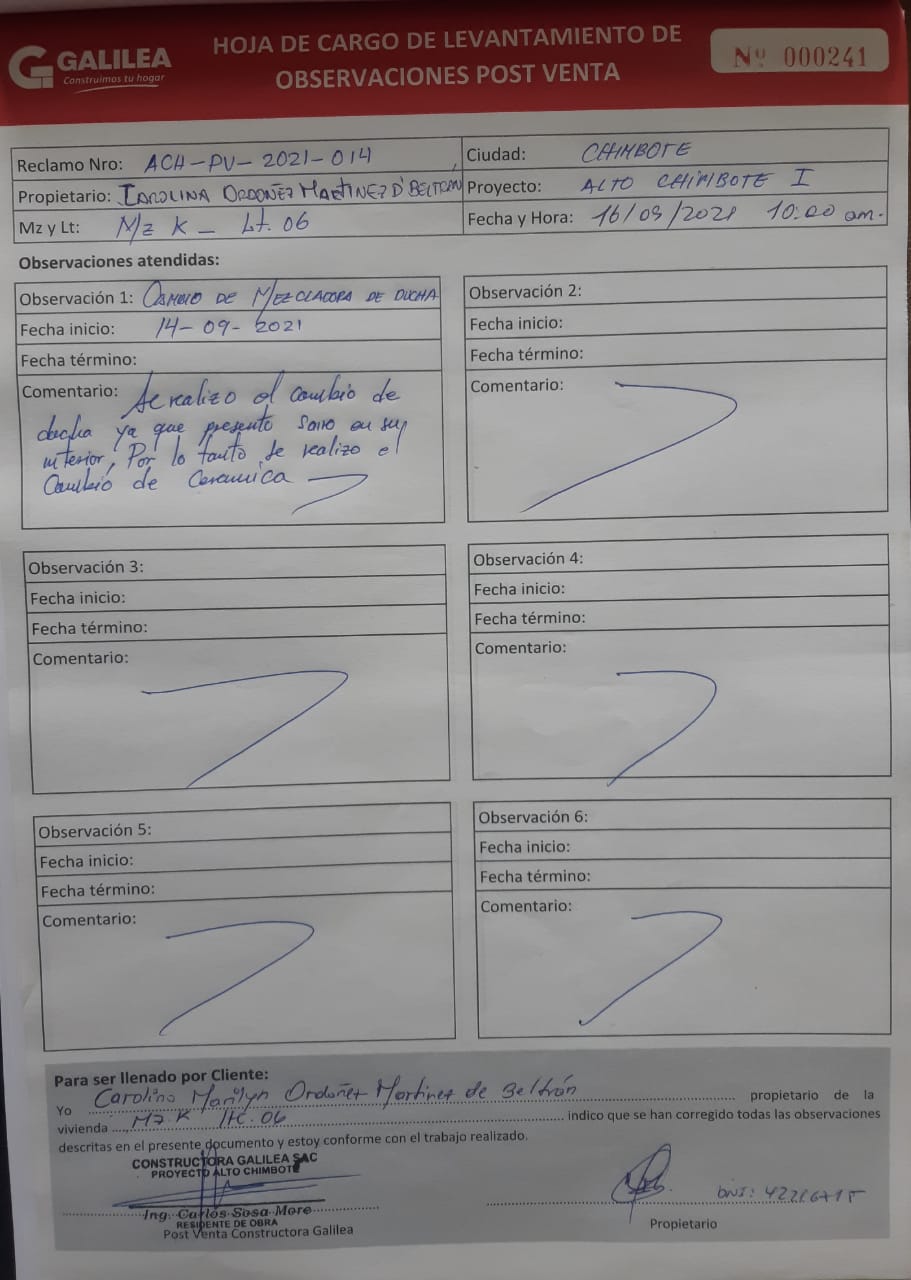 GALILEA
Construimos tu hogar
HOJA DE CARGO DE LEVANTAMIENTO DE
OBSERVACIONES POST VENTA
Nº 000241
Reclamo Nro: ACH-PV-2021-014
Ciudad: CHIMBOTE
Propietario: CAROLINA ORDOÑEZ MARTINEZ D'BELTRAN
Proyecto: ALTO CHIMBOTE I
Mz y Lt: Mz K - Lt. 06
Fecha y Hora: 16/09/2021 10:00 am.
Observaciones atendidas:
Observación 1: CAMBIO DE MEZCLADORA DE DUCHA
Fecha inicio: 14-09-2021
Fecha término:
Comentario: Se realizo el cambio de
ducha ya que presento Sarro en su
interior, Por lo tanto se realizo el
Cambio de Ceramica
Observación 2:
Fecha inicio:
Fecha término:
Comentario:
Observación 3:
Fecha inicio:
Fecha término:
Comentario:
Observación 4:
Fecha inicio:
Fecha término:
Comentario:
Observación 5:
Fecha inicio:
Fecha término:
Comentario:
Observación 6:
Fecha inicio:
Fecha término:
Comentario:
Para ser llenado por Cliente:
Yo Carolina Marilyn Ordoñez Martinez de Beltrán propietario de la
vivienda Mz K lte. 06 indico que se han corregido todas las observaciones
descritas en el presente documento y estoy conforme con el trabajo realizado.
CONSTRUCTORA GALILEA SAC
PROYECTO ALTO CHIMBOTE
Ing. Carlos Sosa More
RESIDENTE DE OBRA
Post Venta Constructora Galilea
DNI:
Propietario